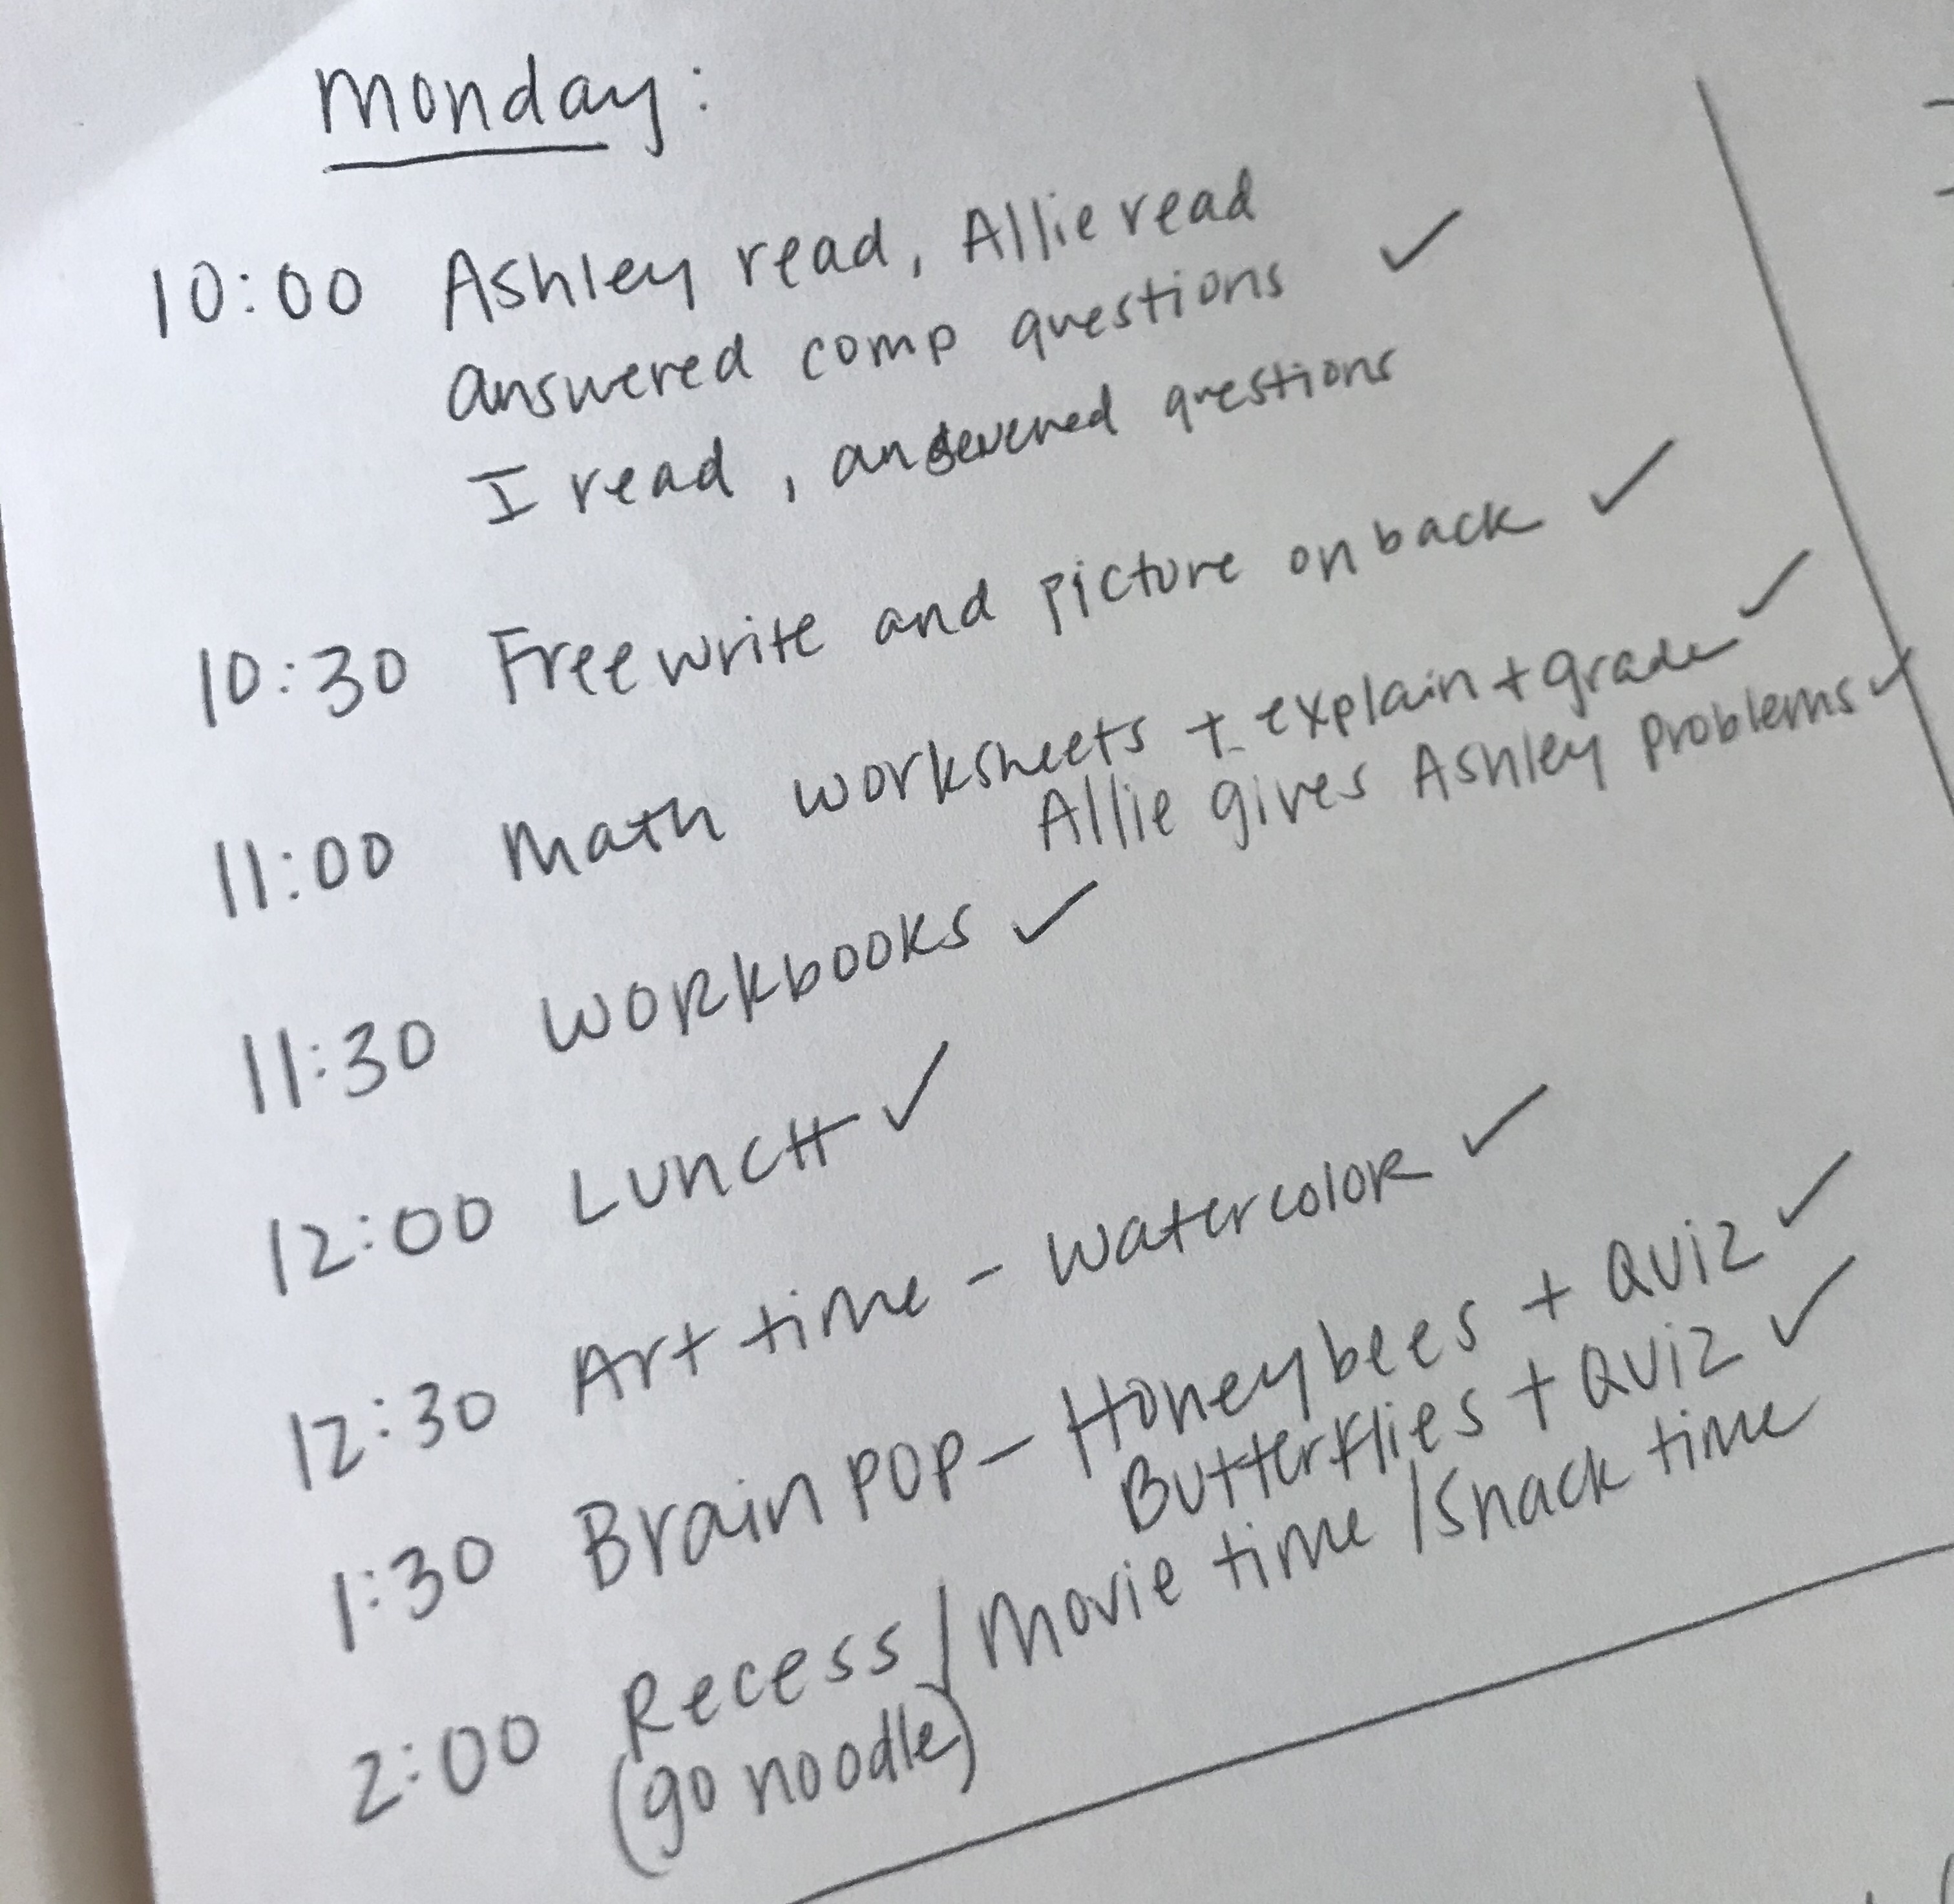 Monday:
10:00 Ashley read, Allie read
answered comp questions ✓
I read, answered questions
10:30 Freewrite and picture on back ✓
11:00 Math worksheets + explain + grade ✓
Allie gives Ashley problems ✓
11:30 WORKbOOKS ✓
12:00 LUNCH ✓
12:30 Art time - WatercoloR ✓
1:30 Brain POP - Honeybees + QUIZ ✓
Butterflies + QUIZ ✓
2:00 Recess / Movie time / Snack time
(go noodle)